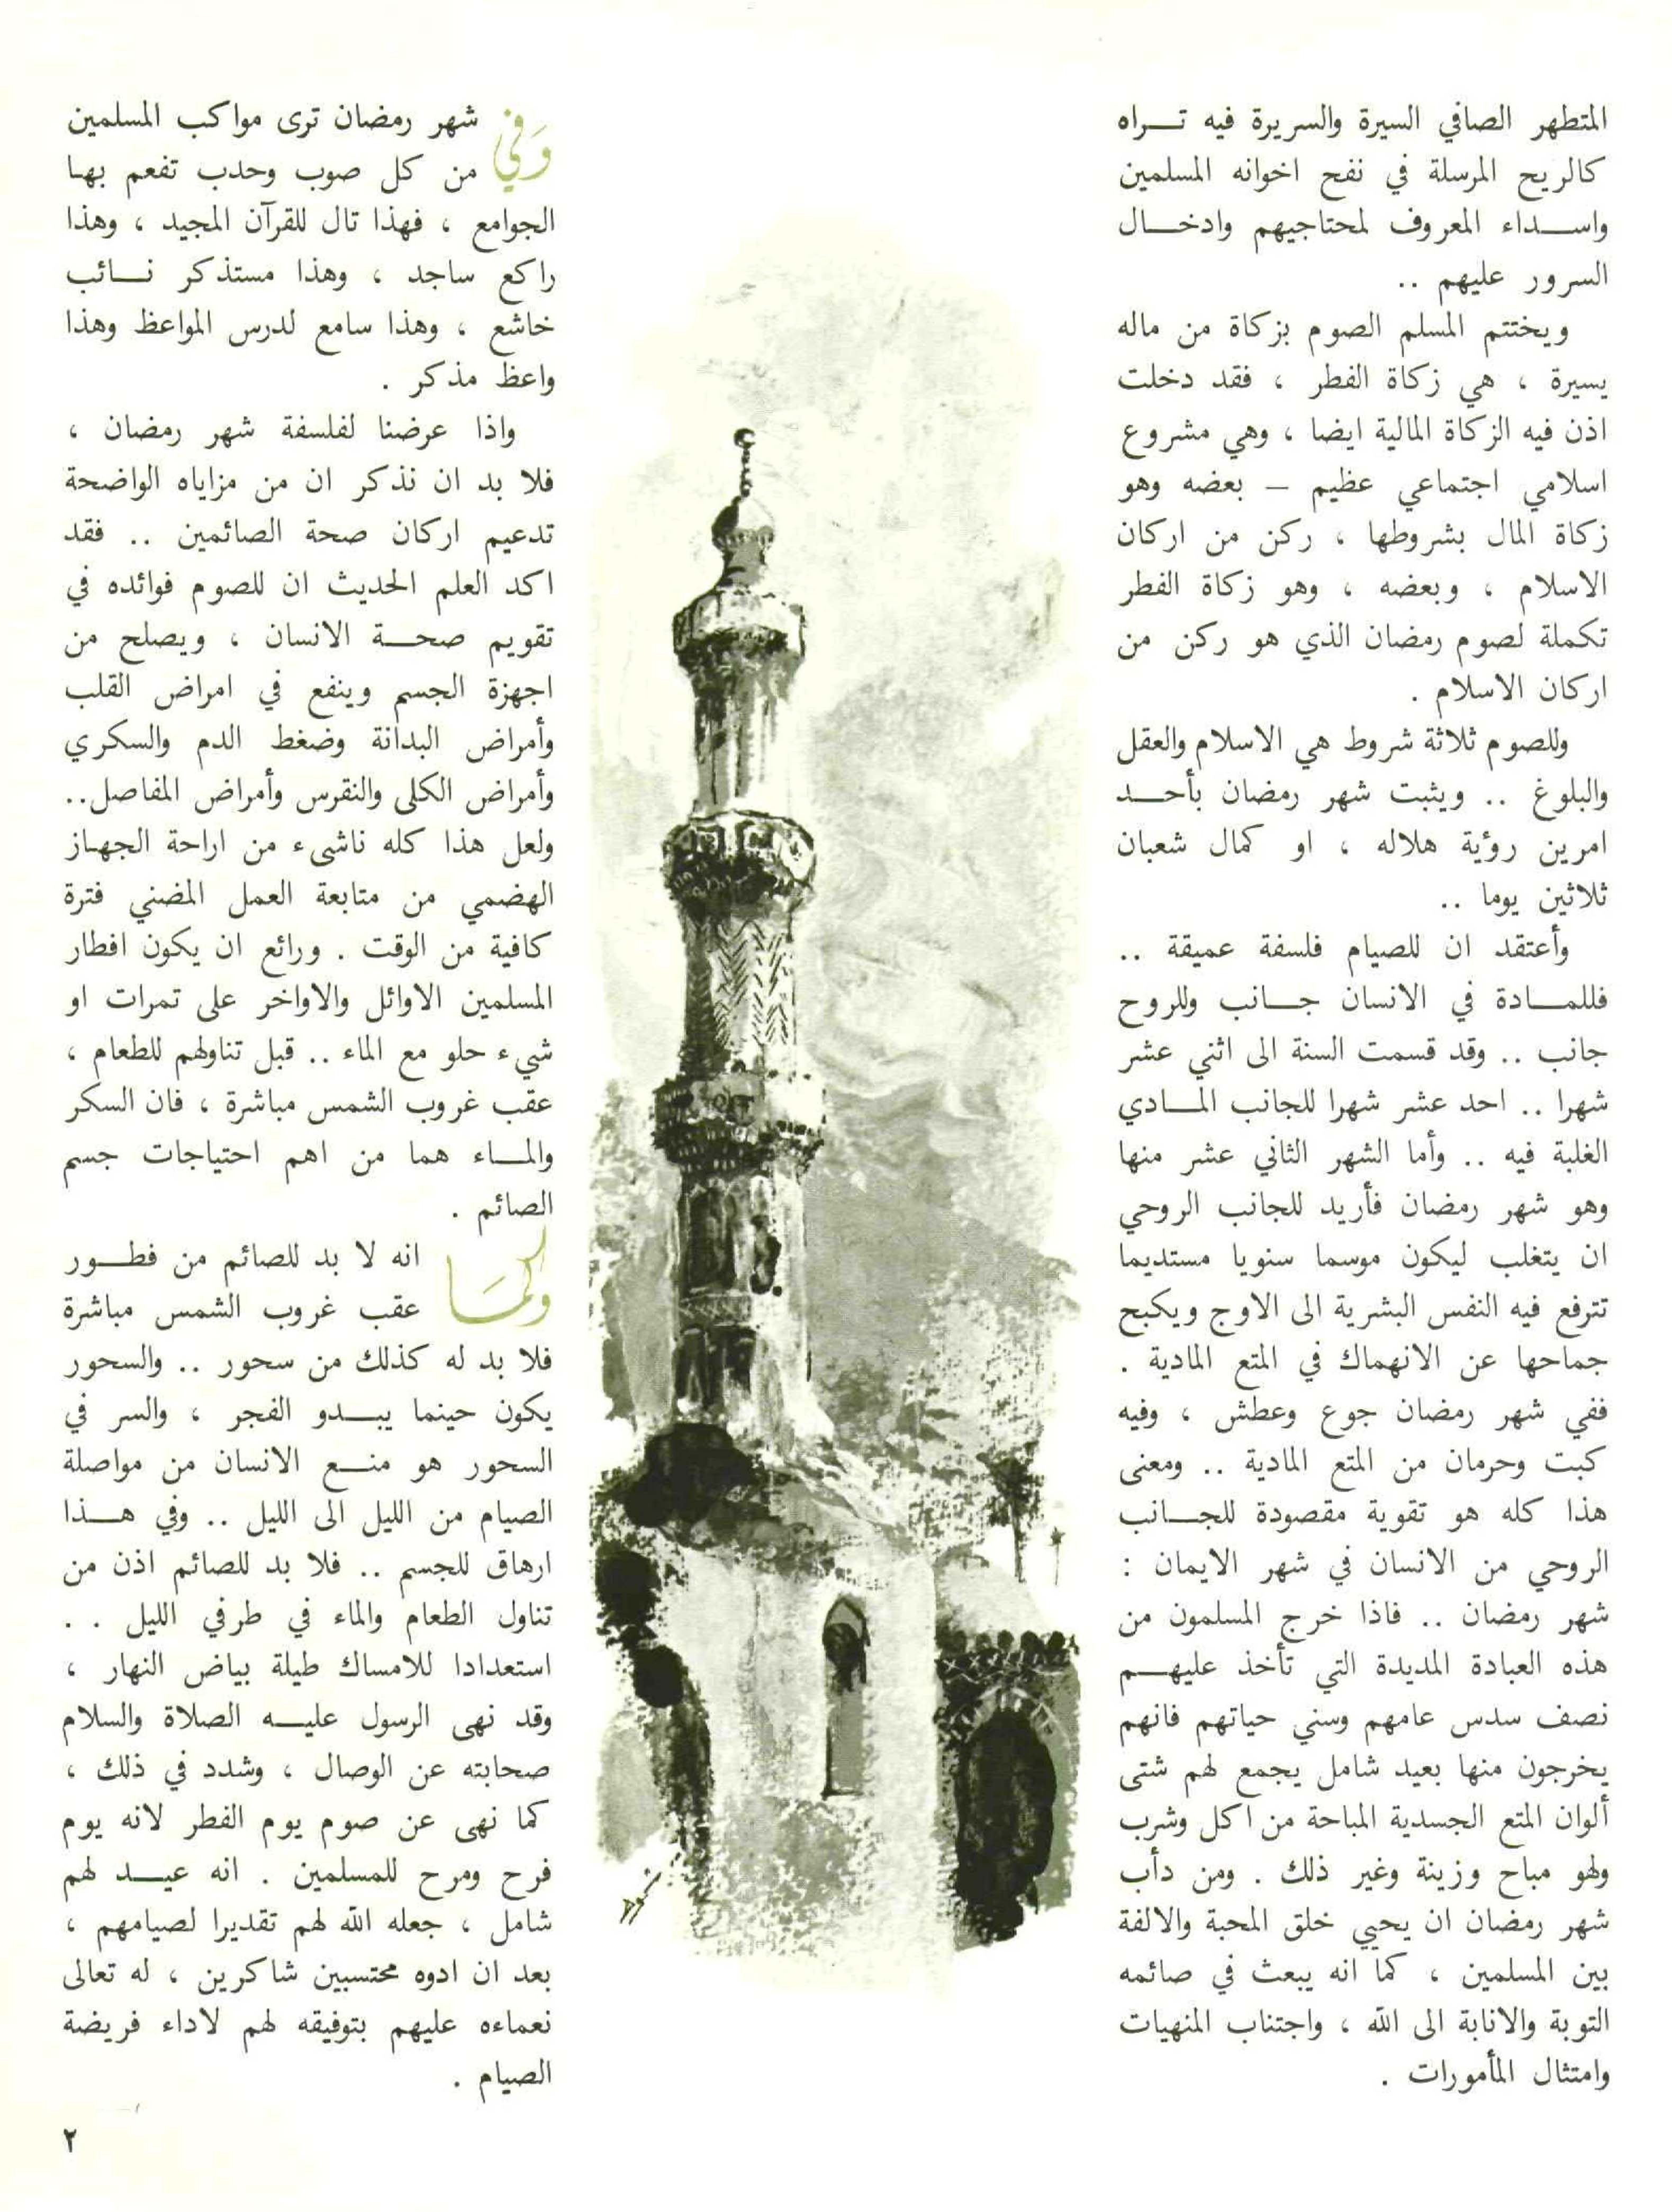 المتطهر الصافي السيرة والسريرة فيه تـــراه
كالريح المرسلة في نفح اخوانه المسلمين
واســـداء المعروف لمحتاجيهم وادخـــال
السرور عليهم ..
ويختتم المسلم الصوم بزكاة من ماله
يسيرة ، هي زكاة الفطر ، فقد دخلت
اذن فيه الزكاة المالية ايضا ، وهي مشروع
اسلامي اجتماعي عظيم – بعضه وهو
زكاة المال بشروطها ، ركن من اركان
الاسلام ، وبعضه ، وهو زكاة الفطر
تكملة لصوم رمضان الذي هو ركن من
اركان الاسلام .
وللصوم ثلاثة شروط هي الاسلام والعقل
والبلوغ .. ويثبت شهر رمضان بأحـــد
امرين رؤية هلاله ، او كمال شعبان
ثلاثين يوما ..
وأعتقد ان للصيام فلسفة عميقة ..
فللمـــادة في الانسان جـــانب وللروح
جانب .. وقد قسمت السنة الى اثني عشر
شهرا .. احد عشر شهرا للجانب المـــادي
الغلبة فيه .. وأما الشهر الثاني عشر منها
وهو شهر رمضان فأريد للجانب الروحي
ان يتغلب ليكون موسما سنويا مستديما
تترفع فيه النفس البشرية الى الاوج ويكبح
جماحها عن الانهماك في المتع المادية .
ففي شهر رمضان جوع وعطش ، وفيه
كبت وحرمان من المتع المادية .. ومعنى
هذا كله هو تقوية مقصودة للجـــانب
الروحي من الانسان في شهر الايمان :
شهر رمضان .. فاذا خرج المسلمون من
هذه العبادة المديدة التي تأخذ عليهـــم
نصف سدس عامهم وسني حياتهم فانهم
يخرجون منها بعيد شامل يجمع لهم شتى
ألوان المتع الجسدية المباحة من اكل وشرب
ولهو مباح وزينة وغير ذلك . ومن دأب
شهر رمضان ان يحيي خلق المحبة والالفة
بين المسلمين ، كما انه يبعث في صائمه
التوبة والانابة الى الله ، واجتناب المنهيات
وامتثال المأمورات .
وَفي شهر رمضان ترى مواكب المسلمين
من كل صوب وحدب تفعم بهـا
الجوامع ، فهذا تال للقرآن المجيد ، وهذا
راكع ساجد ، وهذا مستذكر نـــائب
خاشع ، وهذا سامع لدرس المواعظ وهذا
واعظ مذكر .
واذا عرضنا لفلسفة شهر رمضان ،
فلا بد ان نذكر ان من مزاياه الواضحة
تدعيم اركان صحة الصائمين .. فقد
اكد العلم الحديث ان للصوم فوائده في
تقويم صحـــة الانسان ، ويصلح من
اجهزة الجسم وينفع في امراض القلب
وأمراض البدانة وضغط الدم والسكري
وأمراض الكلى والنقرس وأمراض المفاصل..
ولعل هذا كله ناشىء من اراحة الجهـاز
الهضمي من متابعة العمل المضني فترة
كافية من الوقت . ورائع ان يكون افطار
المسلمين الاوائل والاواخر على تمرات او
شيء حلو مع الماء .. قبل تناولهم للطعام ،
عقب غروب الشمس مباشرة ، فان السكر
والمـــاء هما من اهم احتياجات جسم
الصائم .
وَكمَا انه لا بد للصائم من فطـــور
عقب غروب الشمس مباشرة
فلا بد له كذلك من سحور .. والسحور
يكون حينما يبـــدو الفجر ، والسر في
السحور هو منـــع الانسان من مواصلة
الصيام من الليل الى الليل .. وفي هـــذا
ارهاق للجسم .. فلا بد للصائم اذن من
تناول الطعام والماء في طرفي الليل . .
استعدادا للامساك طيلة بياض النهار ،
وقد نهى الرسول عليـــه الصلاة والسلام
صحابته عن الوصال ، وشدد في ذلك ،
كما نهى عن صوم يوم الفطر لانه يوم
فرح ومرح للمسلمين . انه عيـــد لهم
شامل ، جعله الله لهم تقديرا لصيامهم ،
بعد ان ادوه محتسبين شاكرين ، له تعالى
نعماءه عليهم بتوفيقه لهم لاداء فريضة
الصيام .
٢